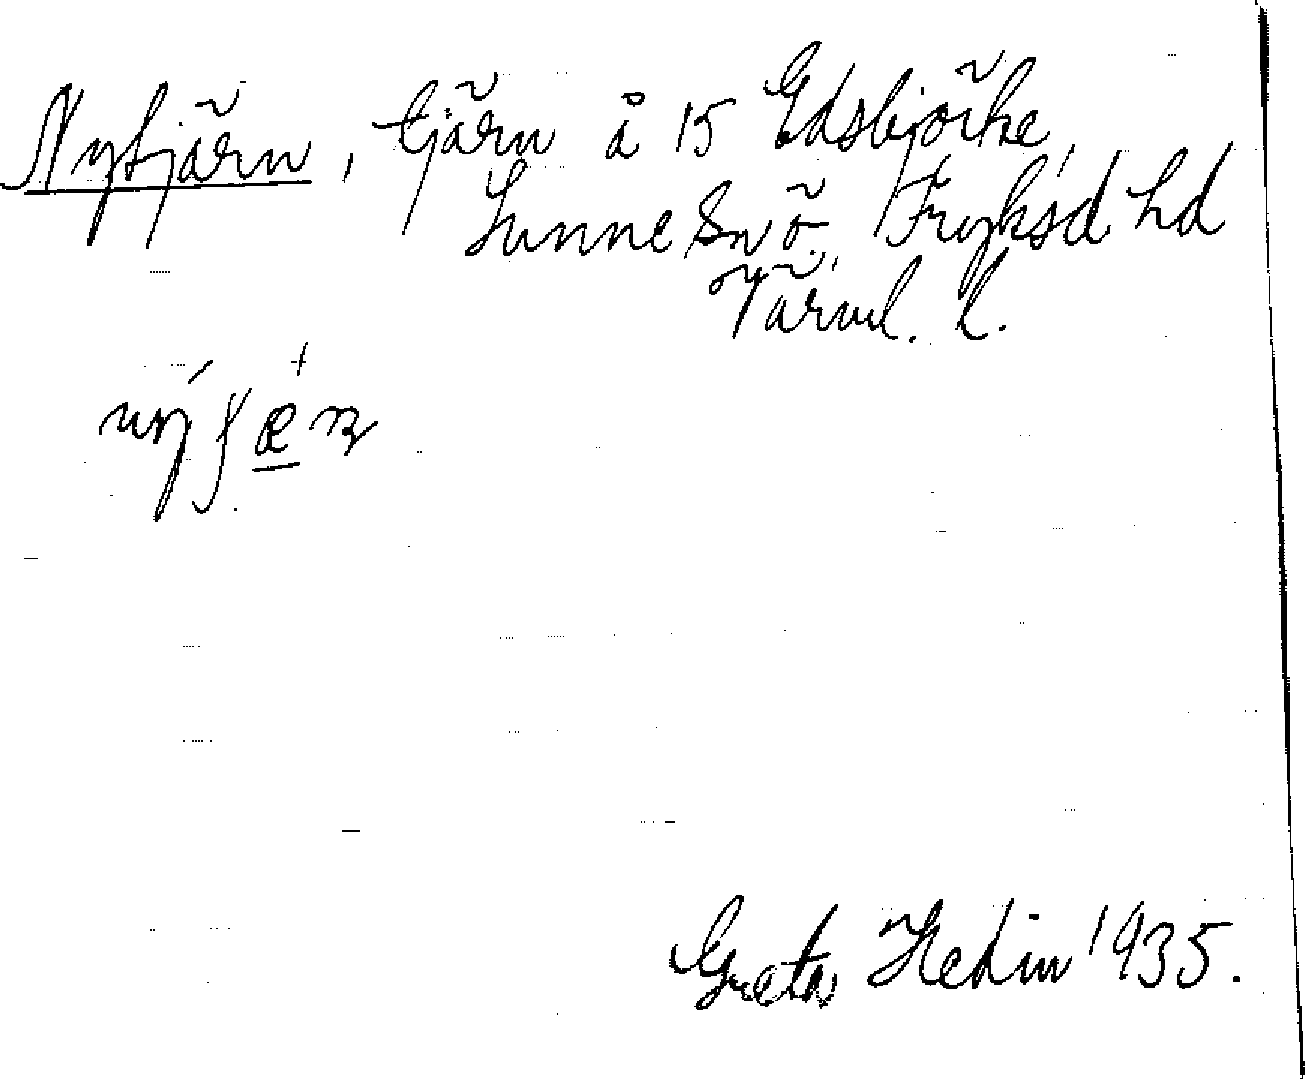 Nytjärn, tjärn å 15 Edsbjörke,
Sunne sn ö. Fryksd hd
Värml. l.
Greta Hedin 1935.